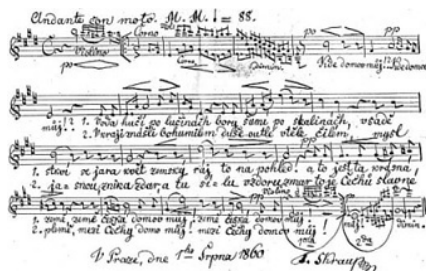 Andante con moto. M. M. ♩= 88.
Violino Corno Solo po pp
po Corno dimin. Kde domov můj!? Kde domov
můj!? 1. Voda hučí po lučinách bory šumí po skalinách, v sadě
2. V kraji znáš-li bohumilém duše outlé v těle čilém mysl
1. stkví se jara květ zemský ráj to na pohled! a to jest ta krásná
2. jasnou, znik a zdar, a tu sílu vzdoru zmar to je Čechů slavné
1. země, země česká domov můj! země česká domov můj!
2. plémě, mezi Čechy domov můj! mezi Čechy domov můj!
Violino dimin.
1ma 2da
V Praze, dne 1ho Srpna 1860 F. Škroup